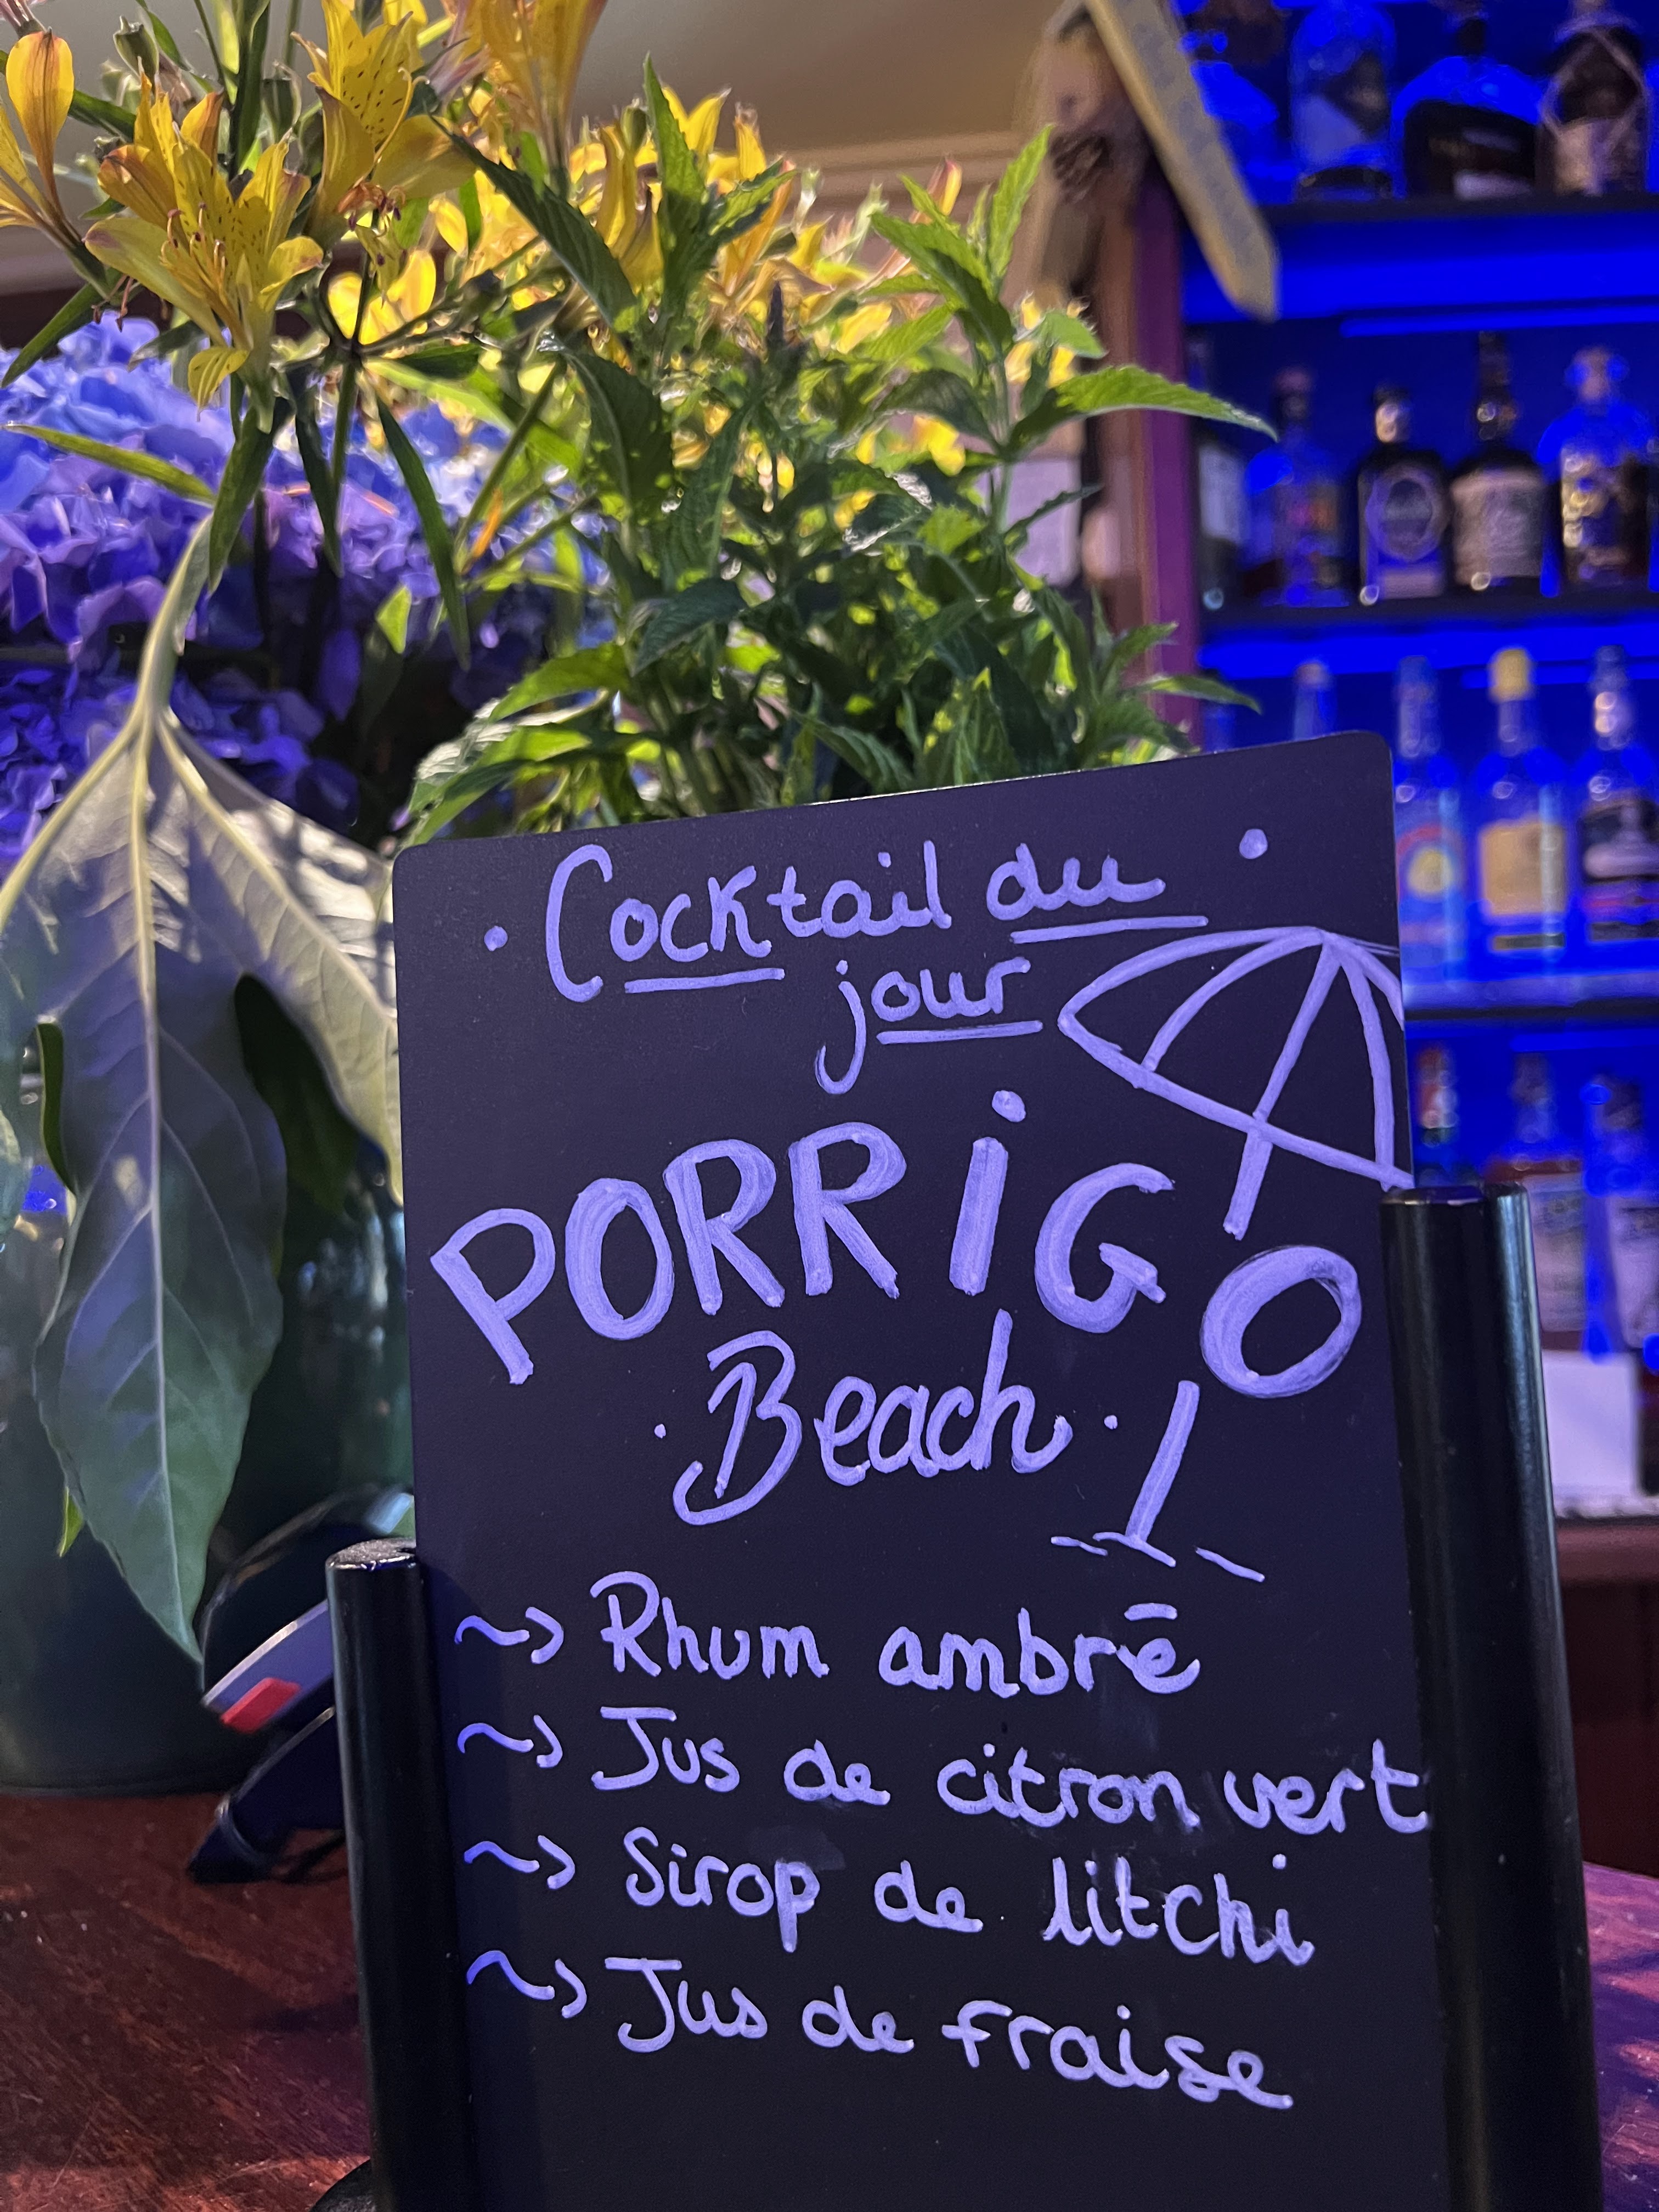 Cocktail du
jour
PORRiGO
Beach
Rhum ambré
Jus de citron vert
Sirop de litchi
Jus de fraise